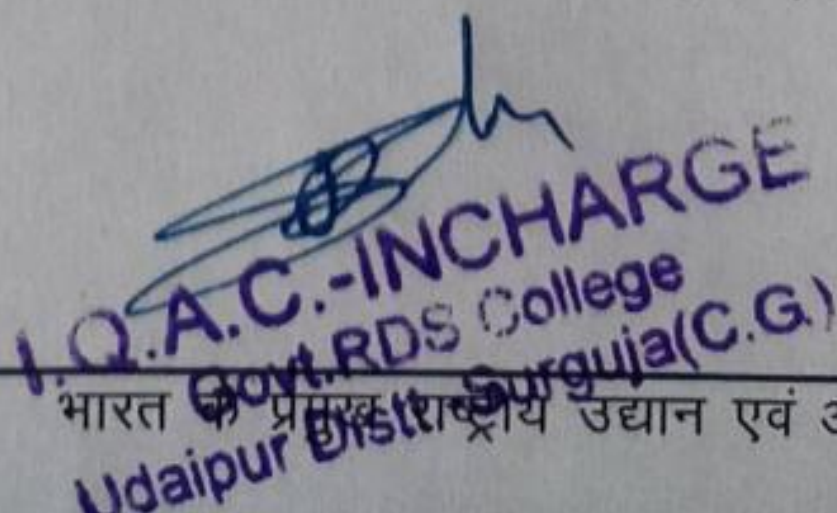 I.Q.A.C.-INCHARGE
Govt.RDS College
Udaipur Distt-Surguja(C.G.)
भारत के प्रमुख राष्ट्रीय उद्यान एवं